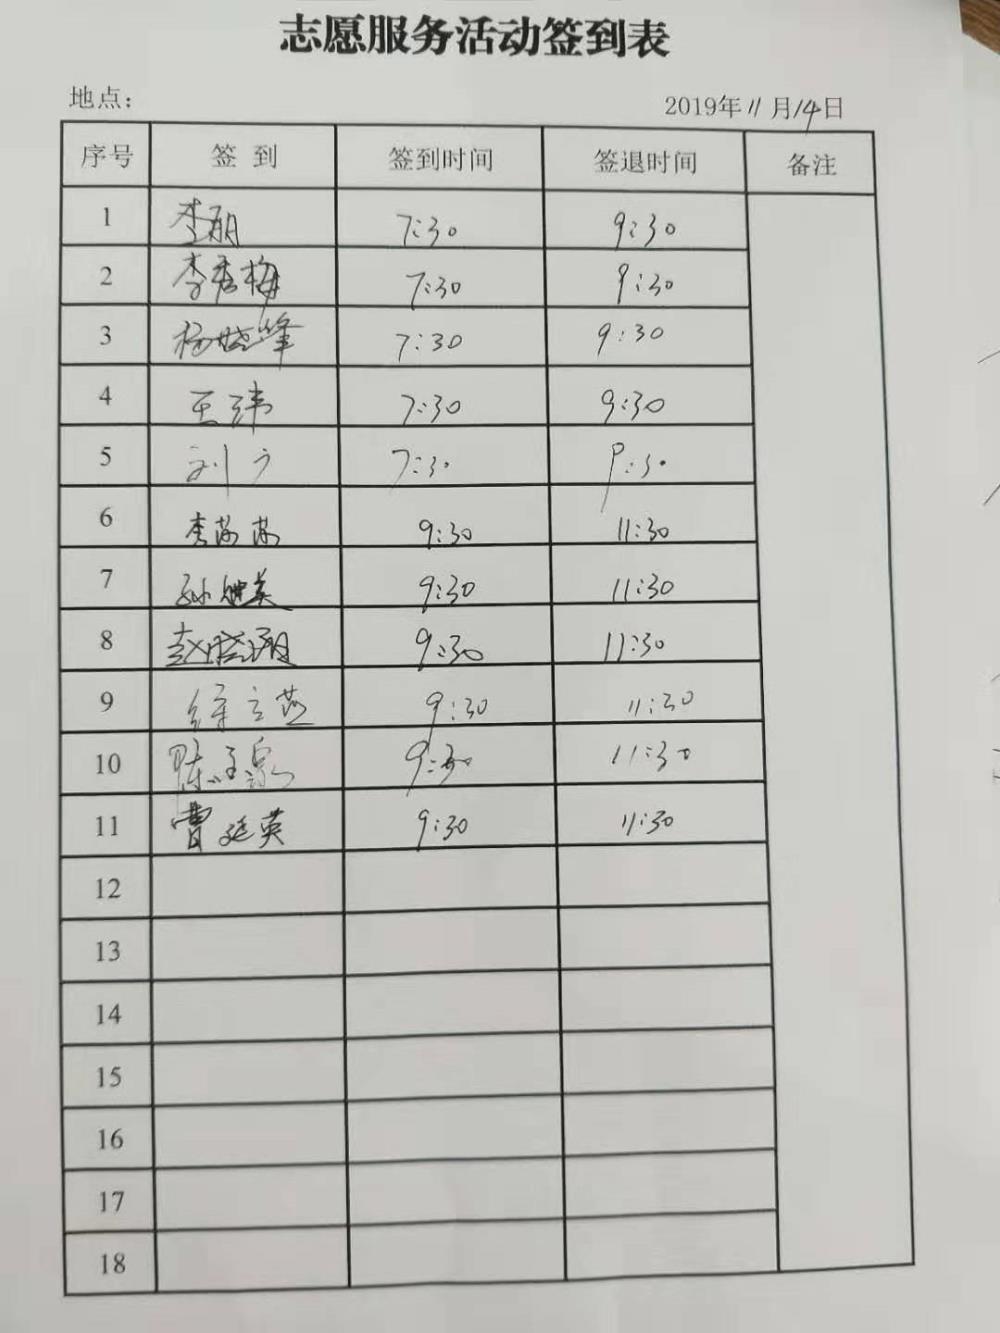 志愿服务活动签到表
地点：
2019年11月14日
序号 签 到 签到时间 签退时间 备注
1 李丽 7:30 9:30
2 李秀梅 7:30 9:30
3 杨晓峰 7:30 9:30
4 王玮 7:30 9:30
5 刘 7:30 9:30
6 李芳芳 9:30 11:30
7 孙继英 9:30 11:30
8 赵晓 9:30 11:30
9 徐立燕 9:30 11:30
10 陈 9:30 11:30
11 曹延英 9:30 11:30
12
13
14
15
16
17
18